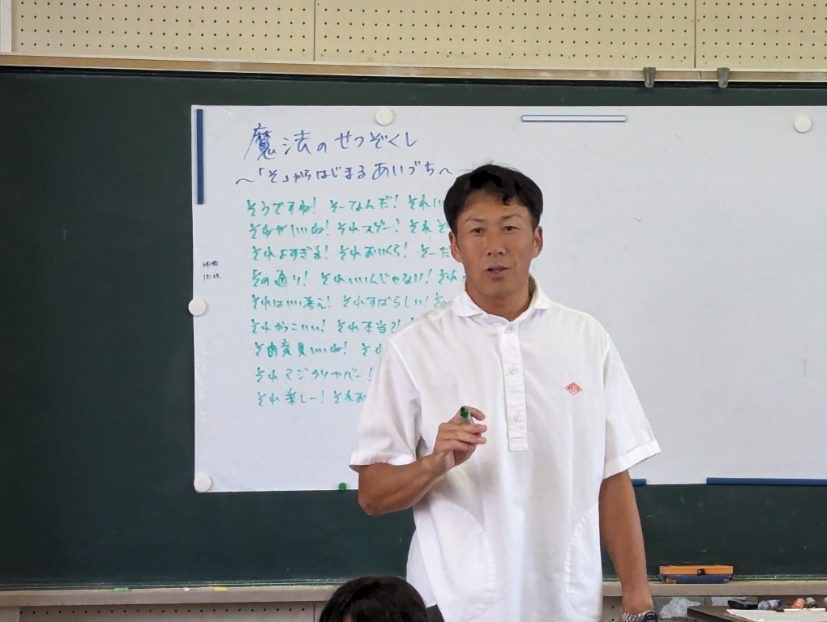 魔法のせつぞくし
～「そ」からはじまるあいづち～
そうですね! そーなんだ! それい
それがいいね! それスゲー! それ
それよすぎる! それおいくら! そーだ
その通り! それいいんじゃない! それ
それはいい考え! それすばらしい! そ
それかっこいい! それ本当?!
その意見いいね! それ
それマジクソヤバー!
それ楽しー! それお